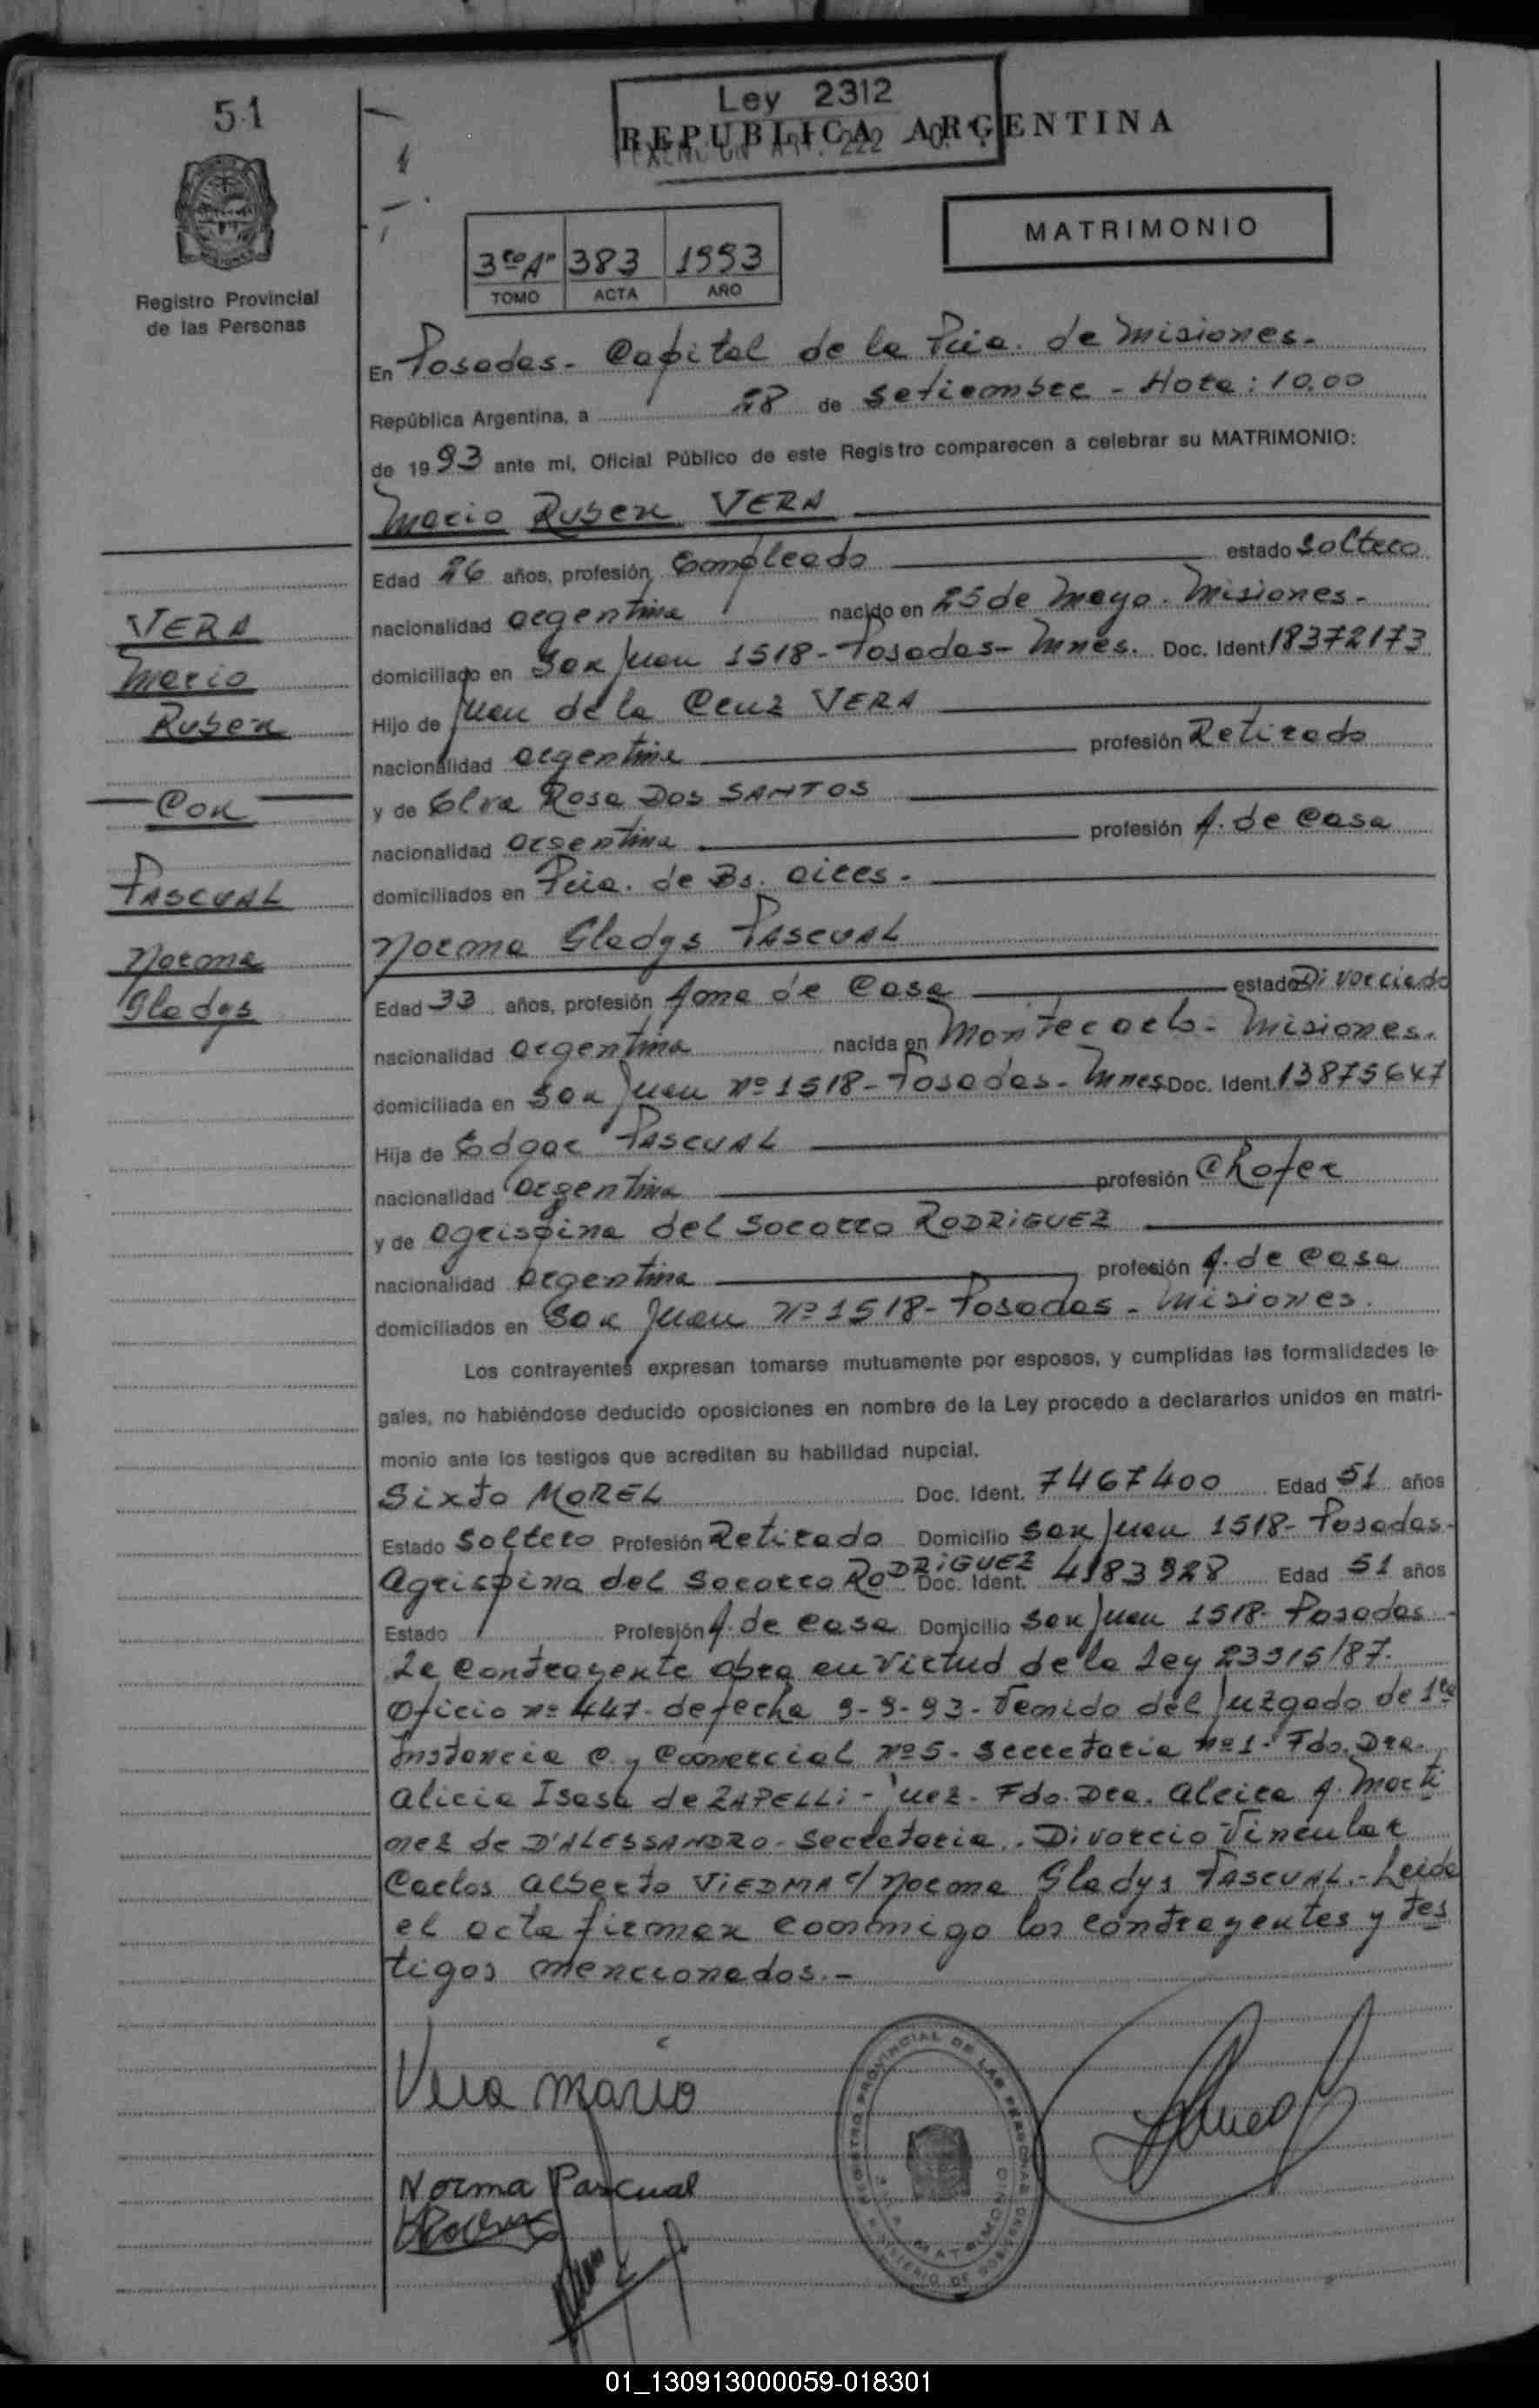 51
Ley 2312
REPUBLICA ARGENTINA
ART. 222
MATRIMONIO
3ro "A" 383 1993
TOMO ACTA AÑO
Registro Provincial
de las Personas
En Posadas - Capital de la Pcia. de Misiones.
República Argentina, a 28 de Setiembre - Hora: 10.00
de 1993 ante mí, Oficial Público de este Registro comparecen a celebrar su MATRIMONIO:
Mario Ruben VERA
Edad 26 años, profesión Empleado estado Soltero
nacionalidad argentina nacido en 25 de Mayo. Misiones.
domiciliado en San Juan 1518 - Posadas - Mnes. Doc. Ident 18372173
Hijo de Juan de la Cruz VERA
nacionalidad argentina profesión Retirado
y de Elva Rosa DOS SANTOS
nacionalidad argentina profesión A. de Casa
domiciliados en Pcia. de Bs. aires.
Norma Gladys PASCUAL
Edad 33 años, profesión Ama de Casa estado Divorciada
nacionalidad argentina nacida en Montecarlo - Misiones.
domiciliada en San Juan Nº 1518 - Posadas - Mnes Doc. Ident. 13875647
Hija de Edgar PASCUAL
nacionalidad argentina profesión Chofer
y de Agrispina del Socorro RODRIGUEZ
nacionalidad Argentina profesión A. de Casa
domiciliados en San Juan Nº 1518 - Posadas - Misiones.
Los contrayentes expresan tomarse mutuamente por esposos, y cumplidas las formalidades le-
gales, no habiéndose deducido oposiciones en nombre de la Ley procedo a declararlos unidos en matri-
monio ante los testigos que acreditan su habilidad nupcial.
Sixto MOREL Doc. Ident. 7467400 Edad 51 años
Estado Soltero Profesión Retirado Domicilio San Juan 1518 - Posadas -
Agrispina del Socorro RODRIGUEZ Doc. Ident. 4183928 Edad 51 años
Estado Profesión A. de Casa Domicilio San Juan 1518 - Posadas -
La Contrayente obra en Virtud de la Ley 23515/87.
Oficio nº 447 - de fecha 9-9-93 - Venido del Juzgado de 1ra
Instancia C. y Comercial nº 5 - Secretaria nº 1 - Fdo. Dra.
Alicia Isasa de ZAPELLI - Juez - Fdo. Dra. Alcira A. Marti
nez de D'ALESSANDRO - Secretaria. - Divorcio Vincular
Carlos Alberto VIEDMA c/ Norma Gladys PASCUAL. - Leida
el acta firman conmigo los contrayentes y tes
tigos mencionados. -
VERA
Mario
Ruben
Con
PASCUAL
Norma
Gladys
Vera Mario
Norma Pascual
REGISTRO PROVINCIAL DE LAS PERSONAS
MATRIMONIO
MINISTERIO DE GOBIERNO
01_130913000059-018301